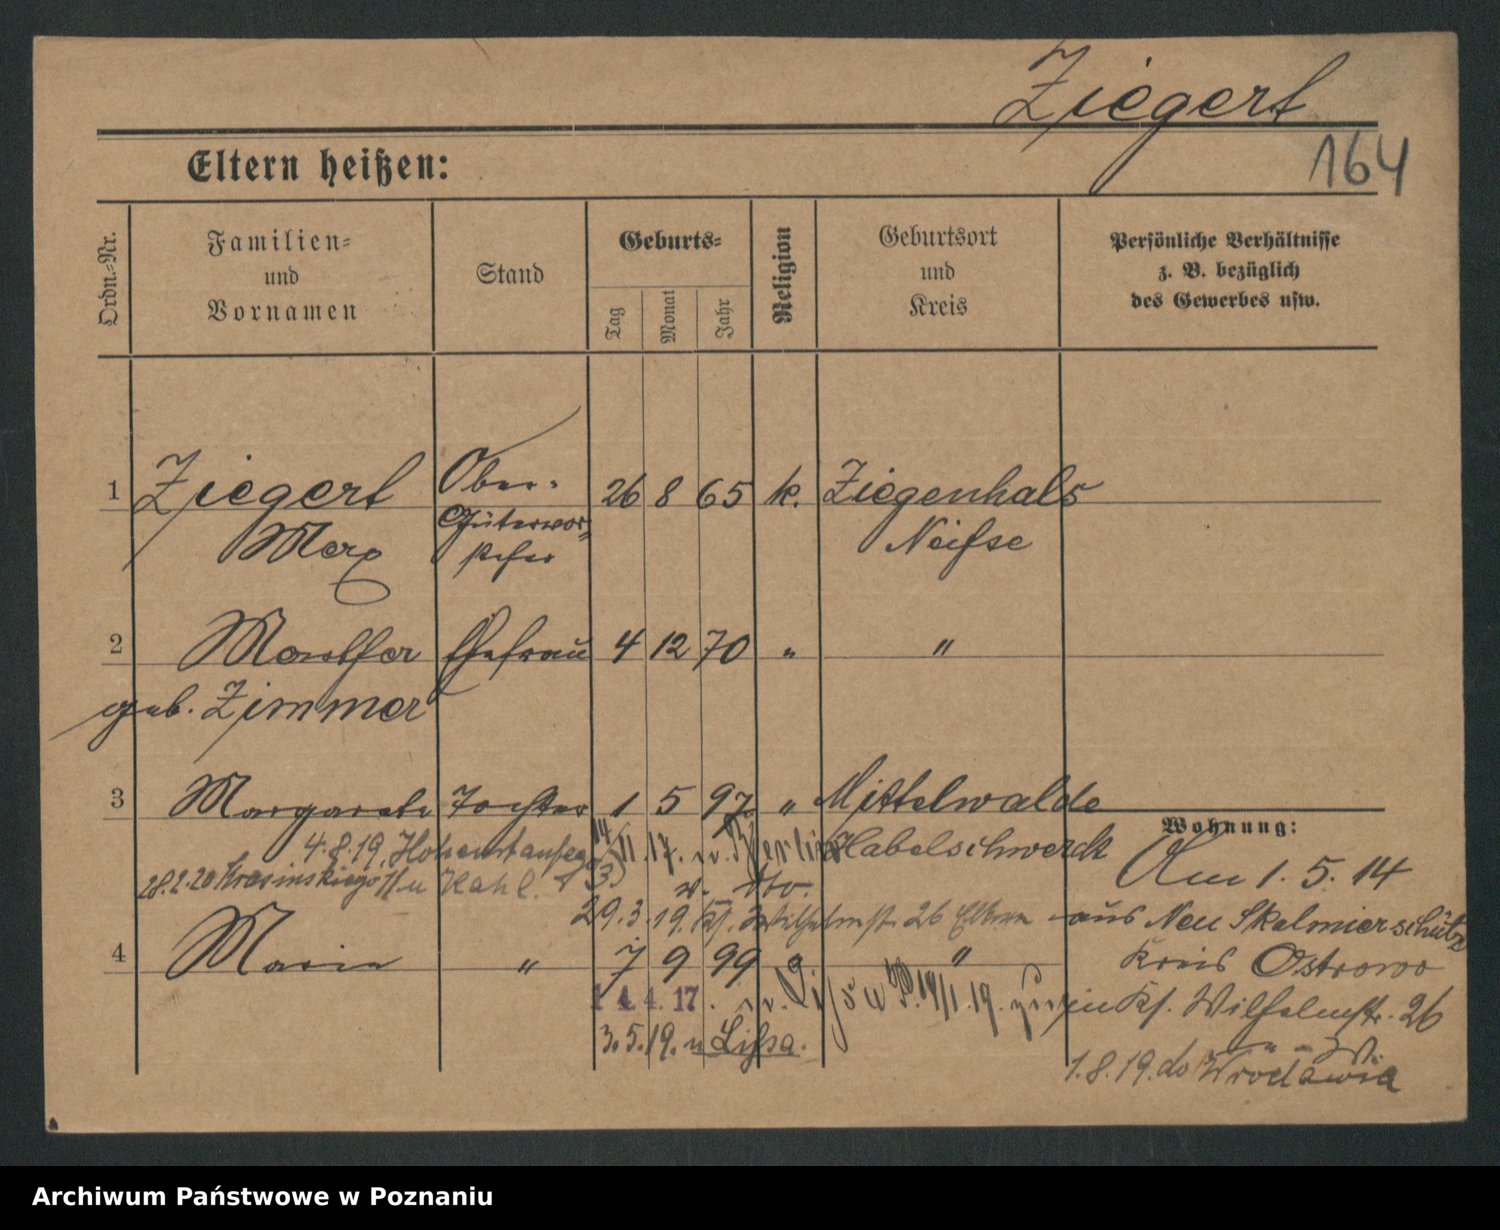 Ziegert
164
Eltern heißen:
Ordn.=Nr.
Familien=
und
Vornamen
Stand
Geburts=
Tag
Monat
Jahr
Religion
Geburtsort
und
Kreis
Persönliche Verhältnisse
z. B. bezüglich
des Gewerbes usw.
1 Ziegert Ober- 26 8 65 k. Ziegenhals
Max Gütervor= Neisse
steher
2 Ehefrau 4 12 70 " "
geb. Zimmer
3 Margarete Tochter 1 5 97 " Mittelwalde
Habelschwerdt
4.8.19. 14/11 17. n. Berlin
28.2.20 Krasinskiego 11 u Kahl.
29.3.19. Kf. Wilhelmstr. 26 Eltern
4 Marie " 7 9 99 " "
14.4.17. n. Lissa 19/1.19. zur.
3.5.19. n Lissa.
Wohnung:
Am 1.5.14
aus Neu Skalmierschütz
Kreis Ostrowo
in Kf. Wilhelmstr. 26
1.8.19. do Wrocławia
Archiwum Państwowe w Poznaniu